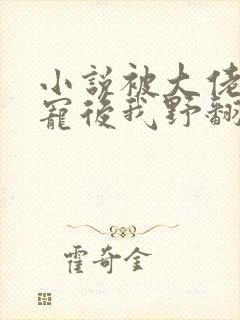 小說被大佬
寵後我野翻
霍奇金